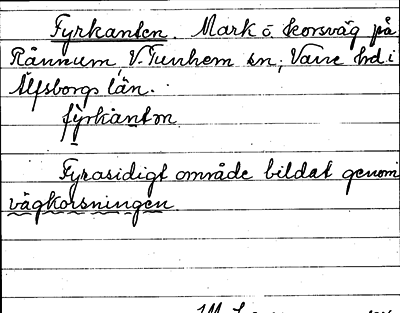 Fyrkanten. Mark o. korsväg på
Rånnum, V. Tunhem sn, Väne hd i
Älfsborgs län.
fỳrkantən
Fyrasidigt område bildat genom
vägkorsningen.